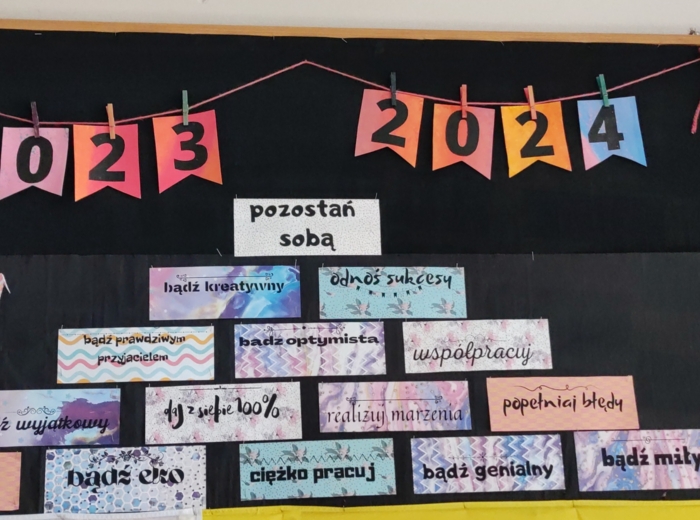 023 2024
pozostań
sobą
bądź kreatywny
odnoś sukcesy
bądź prawdziwym
przyjacielem
bądź optymistą
współpracuj
ź wyjątkowy
daj z siebie 100%
realizuj marzenia
popełniaj błędy
bądź eko
ciężko pracuj
bądź genialny
bądź miły